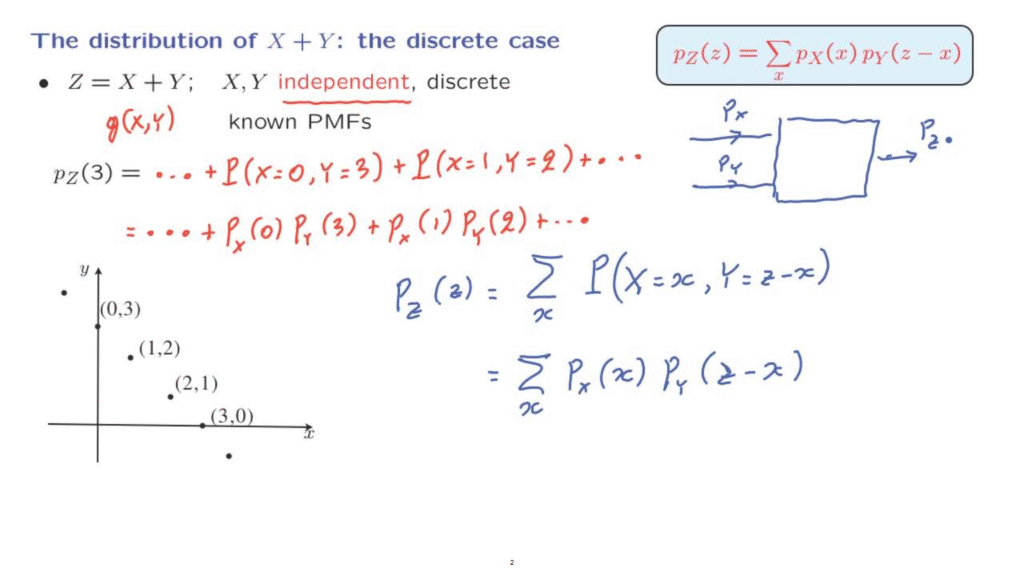 The distribution of X + Y: the discrete case
p_Z(z) = ∑_x p_X(x) p_Y(z − x)
• Z = X + Y; X, Y independent, discrete
g(X,Y) known PMFs
P_X
P_Y
P_Z.
p_Z(3) = ... + P(X=0, Y=3) + P(X=1, Y=2) + ...
= ... + P_X(0) P_Y(3) + P_X(1) P_Y(2) + ...
P_Z(z) = ∑_x P(X=x, Y=z−x)
= ∑_x P_X(x) P_Y(z−x)
y
(0,3)
(1,2)
(2,1)
(3,0)
x
2